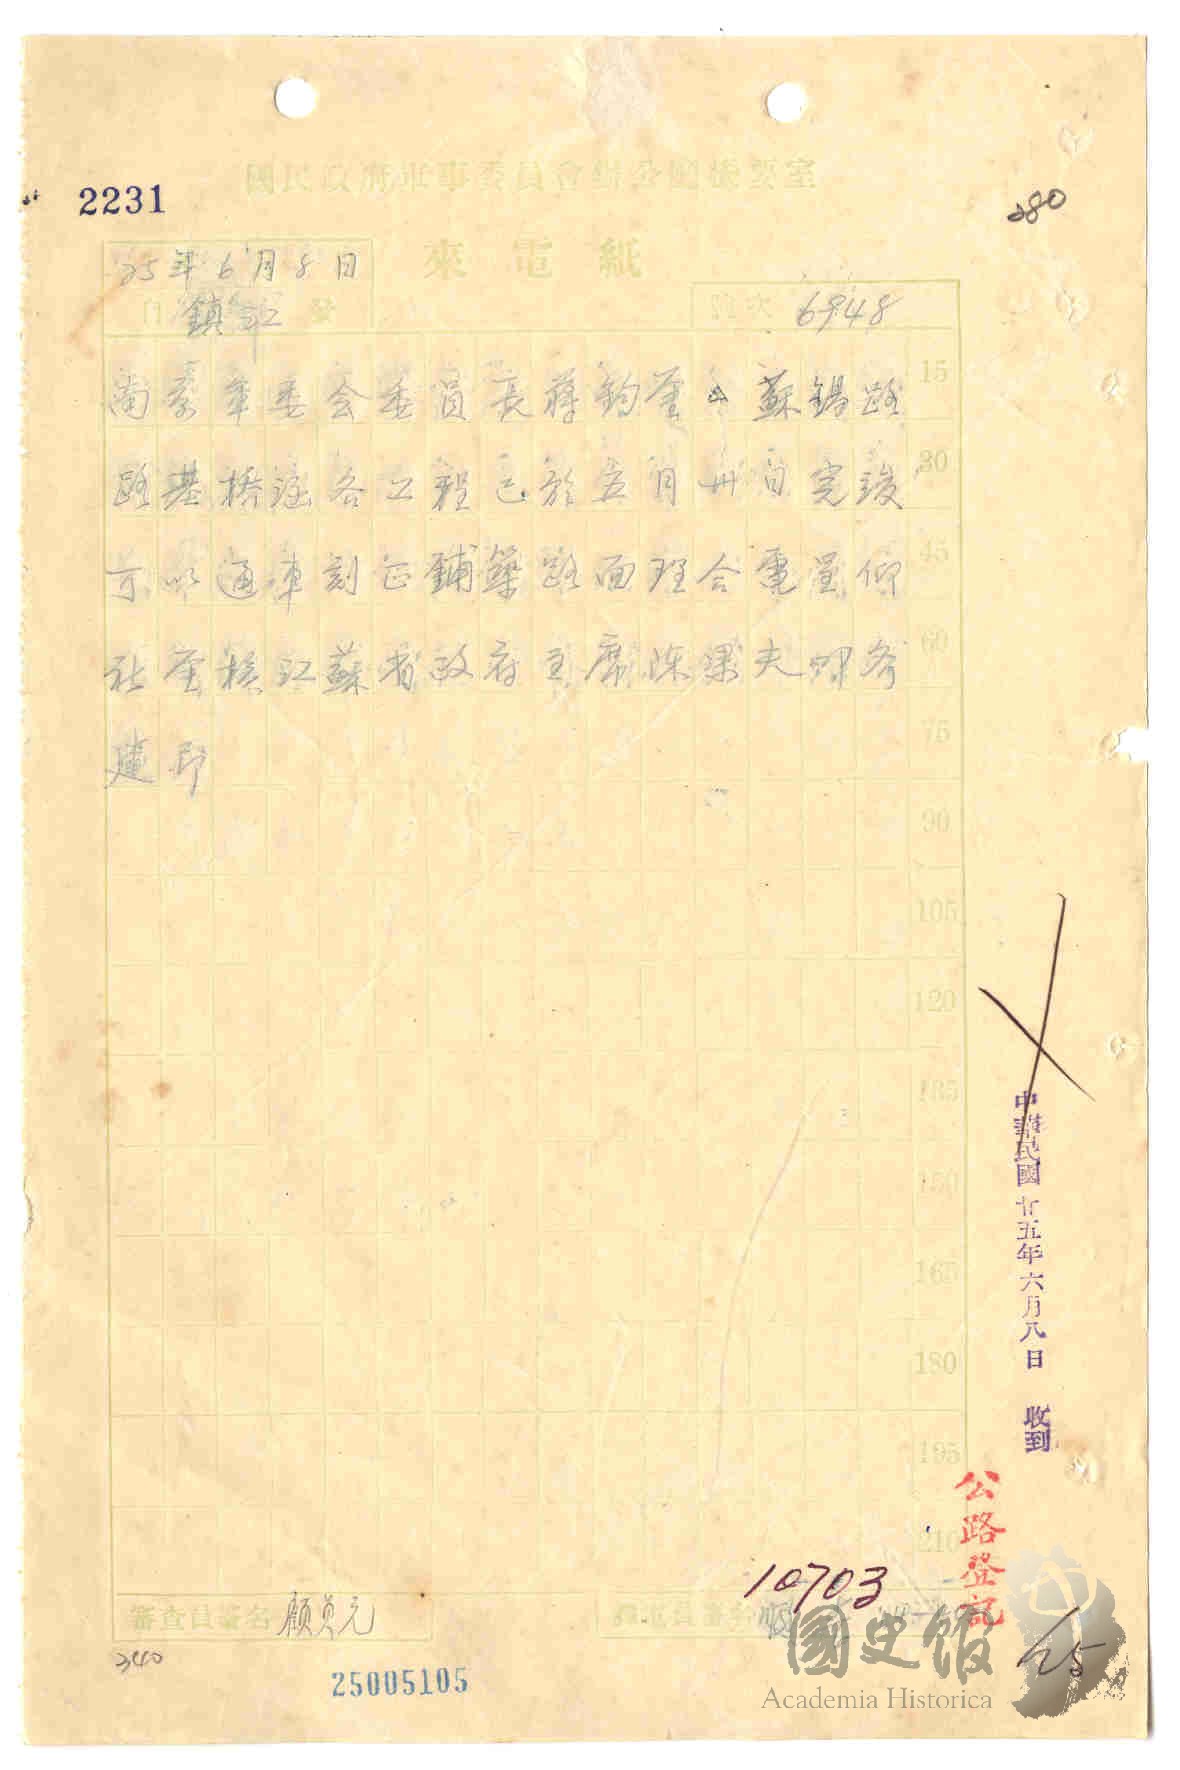 國民政府軍事委員會辦公廳機要室
2231
280
來電紙
25年6月8日
自鎮江發
號次 6948
15
南京軍委会委員長蔣鈞鑒 蘇錫路
30
路基橋涵各工程已於五月卅日完竣
45
可以通車刻正鋪築路面理合電呈仰
60
祈鑒核江蘇省政府主席陳果夫叩
75
建印
90
105
120
135
150
165
180
195
210
中華民國廿五年六月八日 收到
公路登記
10703
審查員署名 顧
譯電員署名
340
25005105
25
國史館
Academia Historica